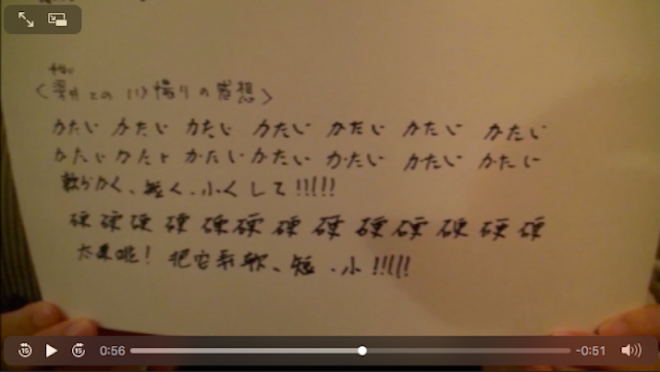 との (1) 撮りの感想〉
かたい かたい かたい かたい かたい かたい かたい
かたい かたい かたい かたい かたい かたい かたい
軟らかく、短く、小くして!!!!!
硬 硬 硬 硬 硬 硬 硬 硬 硬 硬 硬 硬 硬
呢! 把它柔軟、短、小!!!!!
15 15 0:56 -0:51